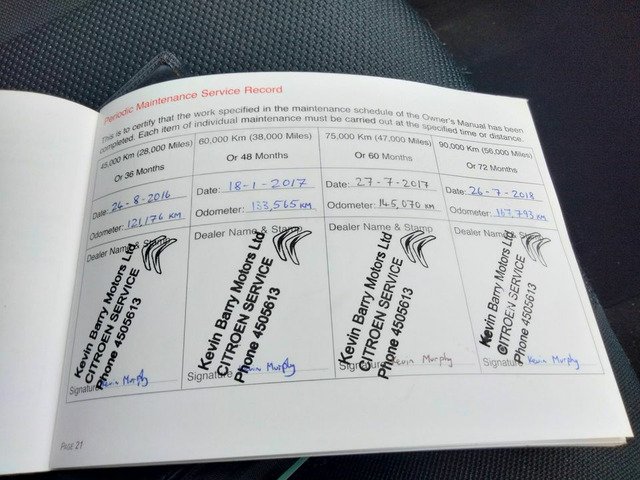 Periodic Maintenance Service Record
This is to certify that the work specified in the maintenance schedule of the Owner's Manual has been
completed. Each item of individual maintenance must be carried out at the specified time or distance.
45,000 Km (28,000 Miles)
Or 36 Months
Date: 24-8-2016
Odometer: 121,176 KM
Dealer Name & Stamp
Kevin Barry Motors Ltd
CITROEN SERVICE
Phone 4505613
Signature Kevin Murphy
60,000 Km (38,000 Miles)
Or 48 Months
Date: 18-1-2017
Odometer: 133,565 KM
Dealer Name & Stamp
Kevin Barry Motors Ltd
CITROEN SERVICE
Phone 4505613
Signature Kevin Murphy
75,000 Km (47,000 Miles)
Or 60 Months
Date: 27-7-2017
Odometer: 145,070 KM
Dealer Name & Stamp
Kevin Barry Motors Ltd
CITROEN SERVICE
Phone 4505613
Signature Kevin Murphy
90,000 Km (56,000 Miles)
Or 72 Months
Date: 26-7-2018
Odometer: 167,793 KM
Dealer Name & Stamp
Kevin Barry Motors Ltd
CITROEN SERVICE
Phone 4505613
Signature Kevin Murphy
PAGE 21